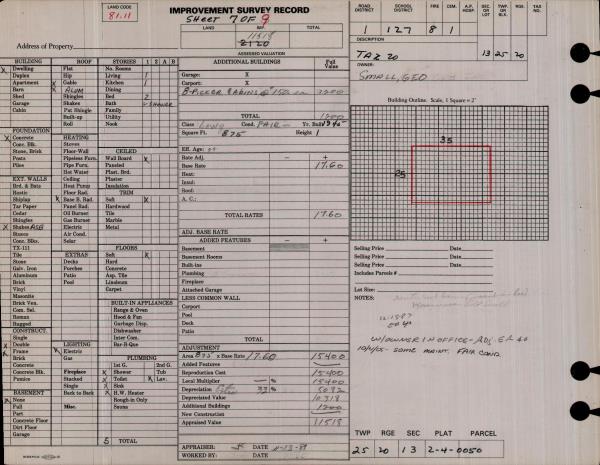 LAND CODE
81.11
IMPROVEMENT SURVEY RECORD
SHEET 7 OF 9
LAND
TOTAL
11518
ASSESSED VALUATION
Address of Property
ROAD DISTRICT
SCHOOL DISTRICT
FIRE
CEM.
A.P. HOSP.
SEC. OR LOT
TWP. OR BLK.
RGE.
TAX NO.
127 8 1
DESCRIPTION
TAX 20 13 25 20
OWNER:
SMALL, GEO
BUILDING
Dwelling
Duplex
Apartment
Barn
Shed
Garage
Cabin
ROOF
Flat
Hip
Gable
ALUM
Shingles
Shakes
Pat Shingle
Built-up
Roll
STORIES 1 2 A B
No. Rooms
Living 1
Kitchen 1
Dining
Bed 2
Bath SHOWER
Family
Utility
Nook
FOUNDATION
Concrete
Conc. Blk.
Stone, Brick
Posts
Piles
HEATING
Stoves
Floor-Wall
Pipeless Furn.
Pipe Furn.
Hot Water
Ceiling
Heat Pump
Floor Rad.
Base B. Rad.
Panel Rad.
Oil Burner
Gas Burner
Electric
Air Cond.
Solar
CEILED
Wall Board
Paneled
Plast. Brd.
Plaster
Insulation
TRIM
Soft X
Hardwood
Tile
Marble
Metal
EXT. WALLS
Brd. & Bats
Rustic
Shiplap
Tar Paper
Cedar
Shingles
Shakes ASB
Stucco
Conc. Blks.
TX-111
Tile
Stone
Galv. Iron
Aluminum
Brick
Vinyl
Masonite
Brick Ven.
Com. Sel.
Roman
Rugged
EXTRAS
Decks
Porches
Patio
Pool
FLOORS
Soft X
Hard
Concrete
Asp. Tile
Linoleum
Carpet
BUILT-IN APPLIANCES
Range & Oven
Hood & Fan
Garbage Disp.
Dishwasher
Inter Com.
Bar-B-Que
CONSTRUCT.
Single
Double
Frame
Brick
Concrete Blk.
Pumice
LIGHTING
Electric
Gas
Fireplace
Stacked
Single
Back to Back
Misc.
PLUMBING
1st G. 2nd G.
Shower Tub
Toilet Lav.
Sink
H.W. Heater
Rough-in Only
Sauna
BASEMENT
None
Full
Part
Concrete Floor
Dirt Floor
Garage
5 TOTAL
ADDITIONAL BUILDINGS
Full Value
Garage: X
Carport: X
TOTAL 1200
Class Cond. FAIR Yr. Built
Square Ft. 875 Height 1
Eff. Age:
Rate Adj. - +
Base Rate 17.60
Heat:
Insul:
Roof:
A. C.:
TOTAL RATES 17.60
ADJ. BASE RATE
ADDED FEATURES - +
Basement
Basement Rooms
Built-ins
Plumbing
Fireplace
Attached Garage
LESS COMMON WALL
Carport
Pool
Deck
Patio
TOTAL
ADJUSTMENT
Area 875 x Base Rate 17.60 15400
Added Features
Reproduction Cost 15400
Local Multiplier % 15400
Depreciation 33% 5082
Depreciated Value 10318
Additional Buildings 1200
New Construction
Appraised Value 11518
APPRAISER: DATE
WORKED BY: DATE
Building Outline. Scale, 1 Square = 2'
35
25
Selling Price Date
Selling Price Date
Selling Price Date
Includes Parcels #
Lot Size:
NOTES:
W/OWNER IN OFFICE-ADJ. EA
SOME MAINT. FAIR COND.
TWP RGE SEC PLAT PARCEL
25 20 13 2-4-0050